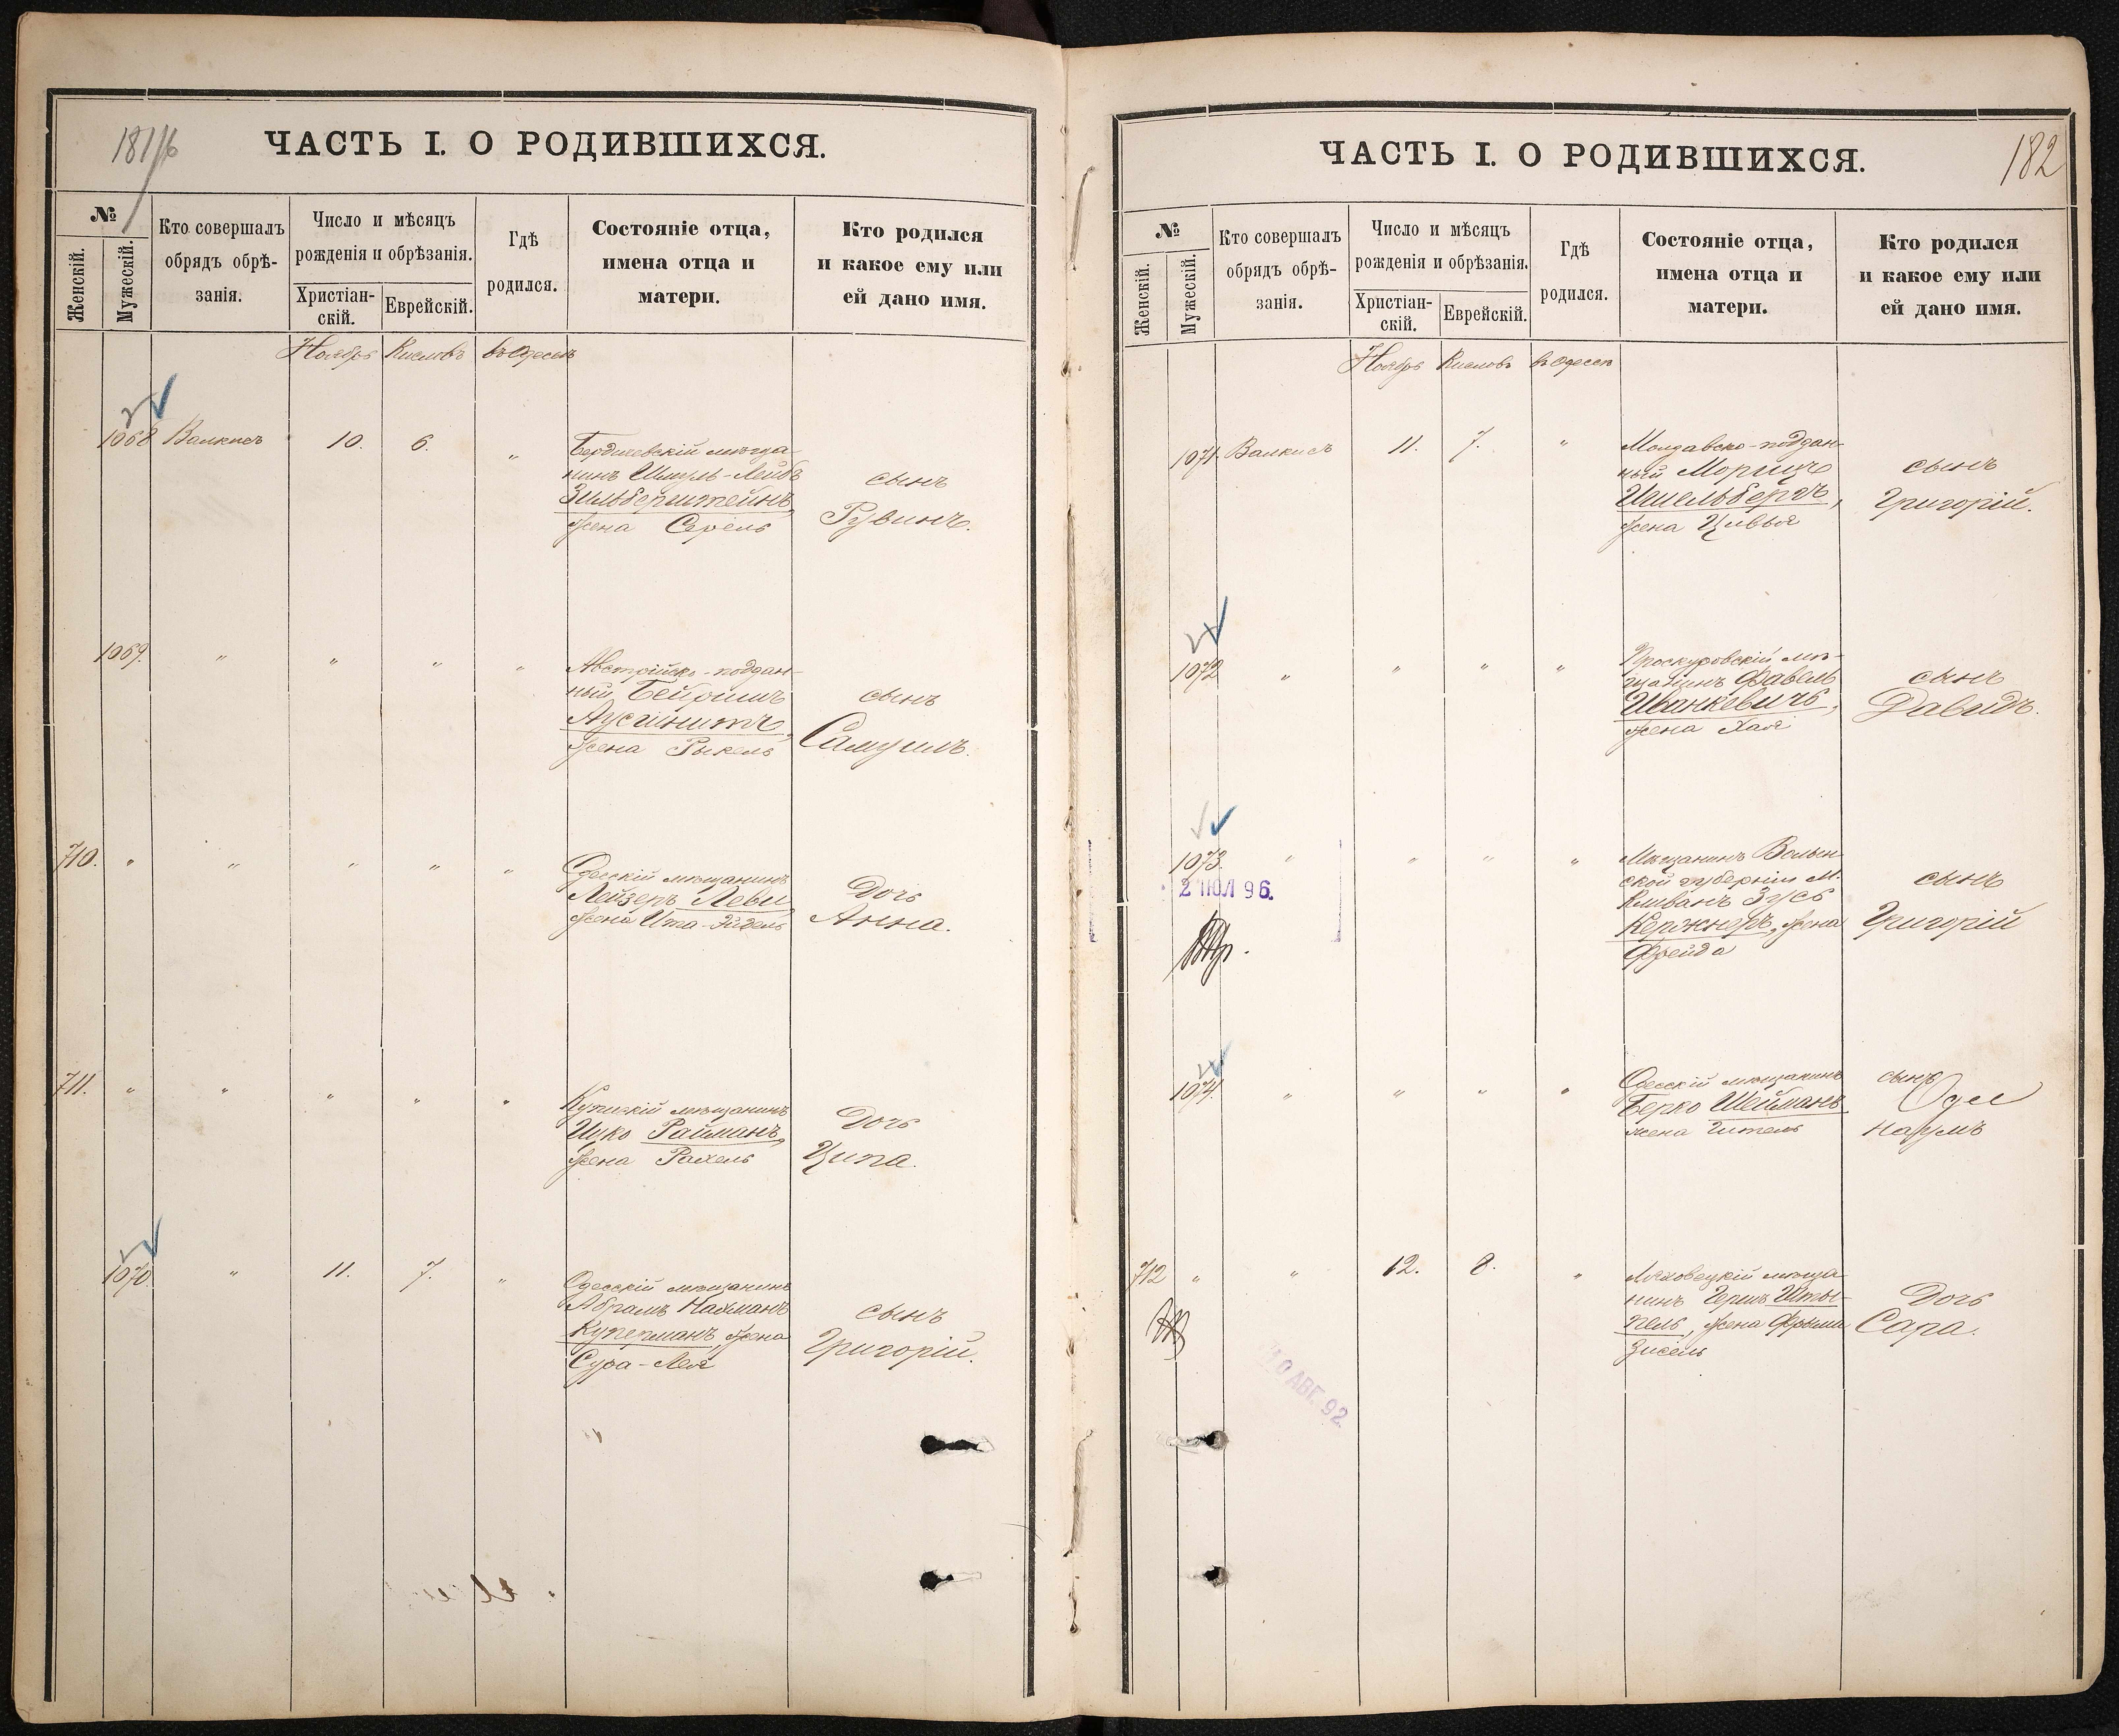 181
ЧАСТЬ I. О РОДИВШИХСЯ.
№
Женскій.
Мужескій.
Кто совершалъ
обрядъ обрѣ-
занія.
Число и мѣсяцъ
рожденія и обрѣзанія.
Христіан-
скій.
Еврейскій.
Гдѣ
родился.
Состояніе отца,
имена отца и
матери.
Кто родился
и какое ему или
ей дано имя.
Ноябрь Кислевъ въ Одессѣ
1068 Валкисъ 10. 6. "
Бердичевскій мѣща
нинъ Шмуль-Лейбъ
Зильберштейнъ,
жена Серель
сынъ
Рувинъ.
1069. " " " "
Австрійско-поддан-
ный Бейришъ
жена Рыкель
сынъ
Самуилъ.
710. " " " " "
Одесскій мѣщанинъ
Лейзеръ Леви
жена Ита-Эйдель
Дочь
Анна.
711. " " " " "
мѣщанинъ
Ицко Райманъ,
жена Рахель
Дочь
Ципа.
1070. " 11. 7. "
Одесскій мѣщанинъ
Абрамъ Нахманъ
Куперманъ, жена
Сура-Лея
сынъ
Григорій.
182
ЧАСТЬ I. О РОДИВШИХСЯ.
№
Женскій.
Мужескій.
Кто совершалъ
обрядъ обрѣ-
занія.
Число и мѣсяцъ
рожденія и обрѣзанія.
Христіан-
скій.
Еврейскій.
Гдѣ
родился.
Состояніе отца,
имена отца и
матери.
Кто родился
и какое ему или
ей дано имя.
Ноябрь Кислевъ въ Одессѣ
1071. Валкисъ 11. 7. "
Молдавско-поддан-
ный Морицъ
Ишельбергъ,
жена Цивья
сынъ
Григорій.
1072 " " " "
Проскуровскій мѣ-
щанинъ Фавель
Иванкевичъ,
жена Хая
сынъ
Давидъ.
1073. " " " "
2 ІЮЛ 96.
Мѣщанинъ Волын
ской губерніи м.
Кливанъ Зусь
Кержнеръ, жена
Фрейда
сынъ
Григорій
1074. " " " "
Одесскій мѣщанинъ
Берко Шейманъ
жена Гитель
сынъ
Наумъ
712 " " 12. 8. "
Ляховецкій мѣща
нинъ Гершъ Штеы-
пель, жена
Зисель
Дочь
Сара.
10 АВГ. 92.